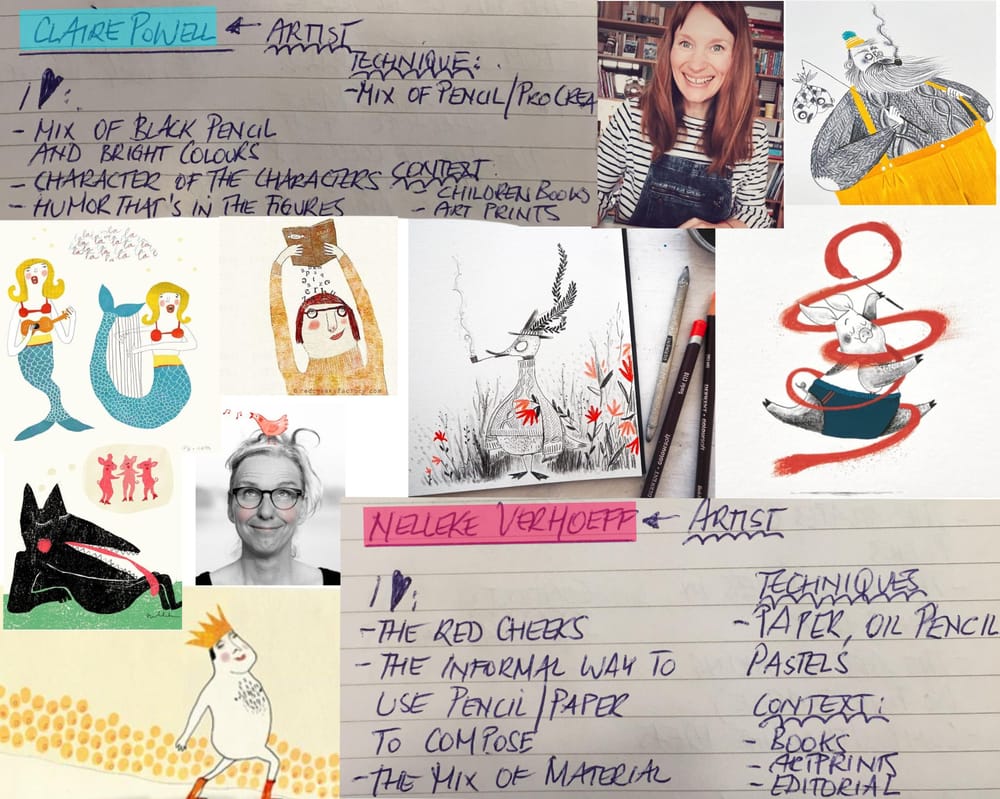 CLAIRE POWELL ← ARTIST
TECHNIQUE:
-MIX OF PENCIL/PROCREA
I ♥:
- MIX OF BLACK PENCIL
AND BRIGHT COLOURS
- CHARACTER OF THE CHARACTERS
- HUMOR THAT'S IN THE FIGURES
CONTEXT:
- CHILDREN BOOKS
- ART PRINTS
la la la la
la la la la la
la la la la la
©redcheeksfactory.com
NELLEKE VERHOEFF ← ARTIST
I ♥:
-THE RED CHEEKS
-THE INFORMAL WAY TO
USE PENCIL/PAPER
TO COMPOSE
-THE MIX OF MATERIAL
TECHNIQUES
-PAPER, OIL PENCIL
PASTELS
CONTEXT:
- BOOKS
- ARTPRINTS
- EDITORIAL